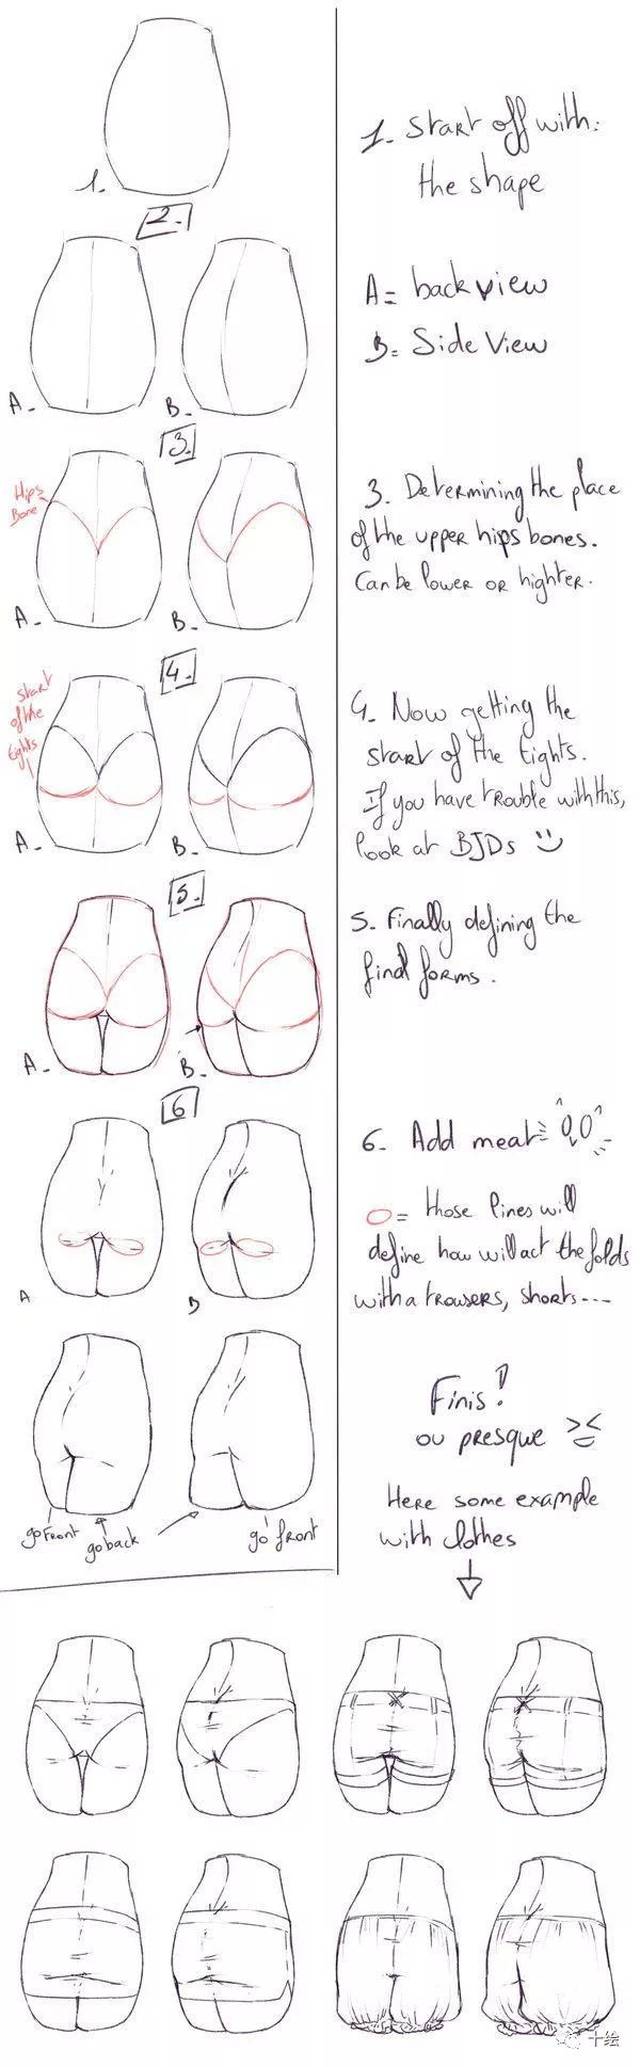 1.
1. Start off with:
the shape
2.
A= back view
B= Side View
A-
B-
3.
Hips
Bone
A-
B-
3. Determining the place
of the upper hips bones.
Can be lower or highter.
4.
start
of the
tights
A-
B-
4. Now getting the
start of the tights.
If you have trouble with this,
look at BJDs
5.
A-
B-
5. Finally defining the
final forms.
6
A
B
6. Add meat
= those lines will
define how will act the folds
with a trousers, shorts...
go front
go back
go front
Finis!
ou presque ><
Here some example
with clothes
十绘